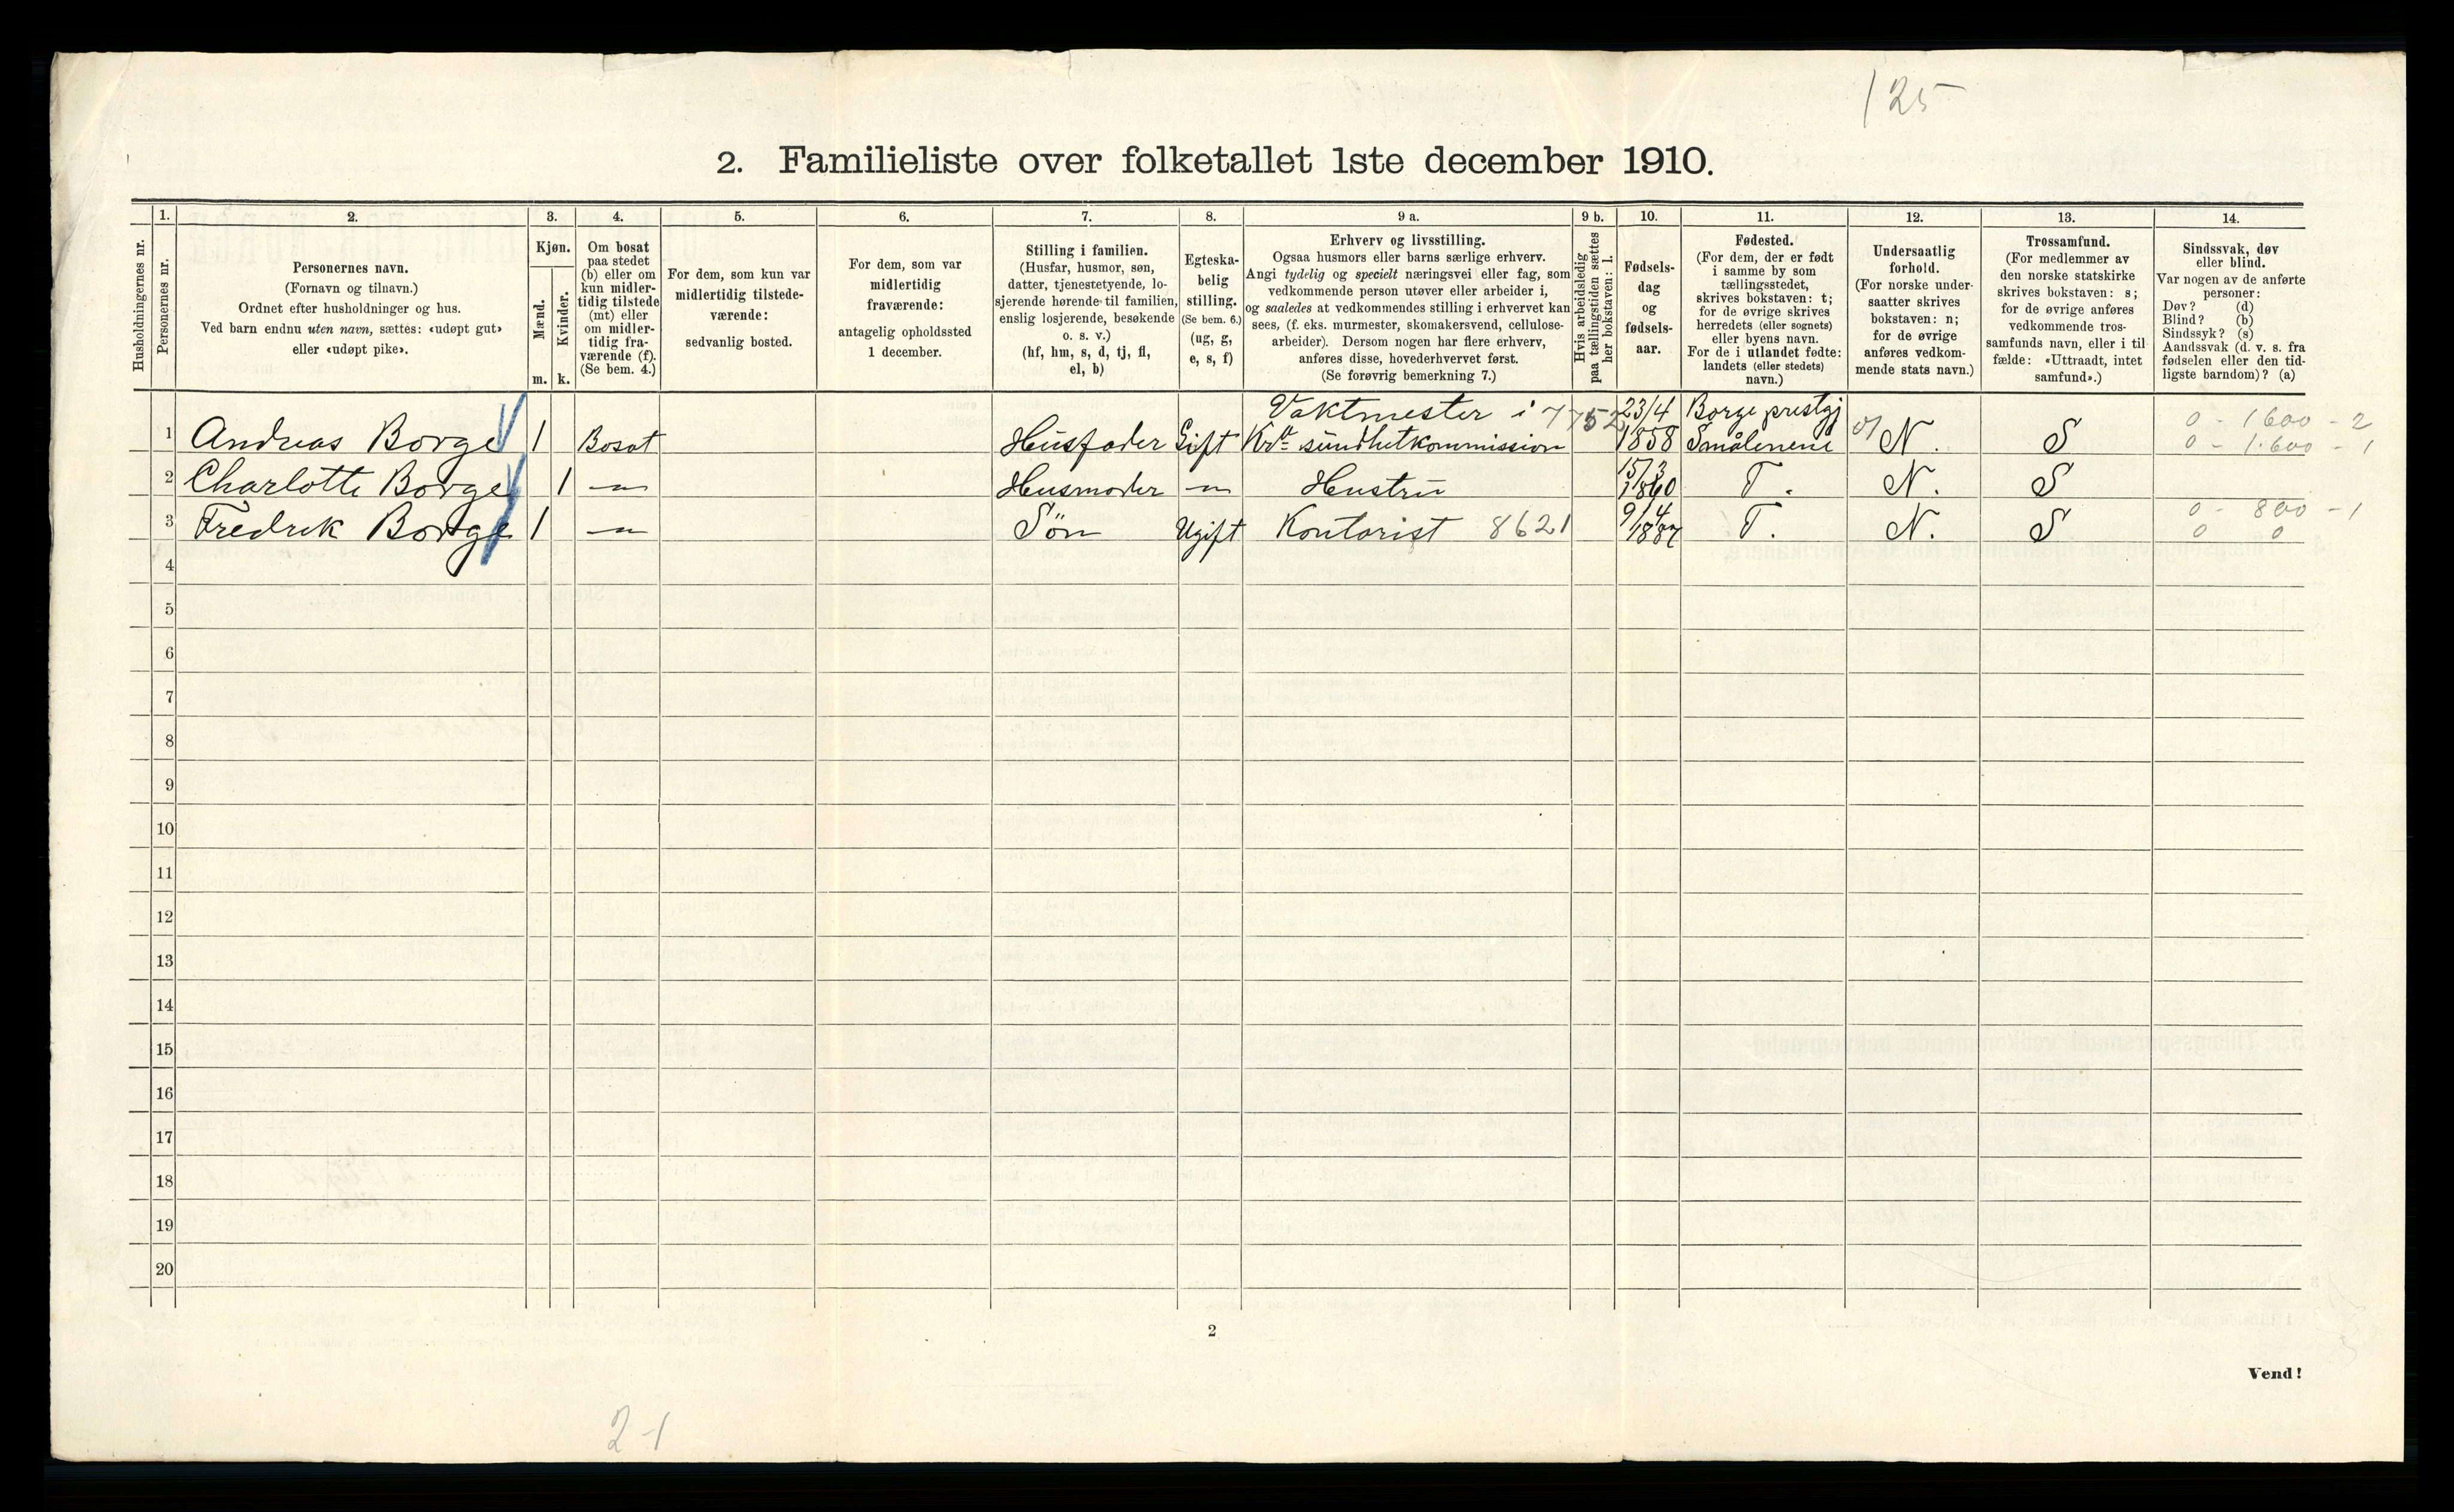 125
2. Familieliste over folketallet 1ste december 1910.
1. 2. 3. 4. 5. 6. 7. 8. 9 a. 9 b. 10. 11. 12. 13. 14.
Husholdningernes nr.
Personernes nr.
Personernes navn.
(Fornavn og tilnavn.)
Ordnet efter husholdninger og hus.
Ved barn endnu uten navn, sættes: «udøpt gut»
eller «udøpt pike».
Kjøn.
Mænd.
Kvinder.
m. k.
Om bosat
paa stedet
(b) eller om
kun midler-
tidig tilstede
(mt) eller
om midler-
tidig fra-
værende (f).
(Se bem. 4.)
For dem, som kun var
midlertidig tilstede-
værende:
sedvanlig bosted.
For dem, som var
midlertidig
fraværende:
antagelig opholdssted
1 december.
Stilling i familien.
(Husfar, husmor, søn,
datter, tjenestetyende, lo-
sjerende hørende til familien,
enslig losjerende, besøkende
o. s. v.)
(hf, hm, s, d, tj, fl,
el, b)
Egteska-
belig
stilling.
(Se bem. 6.)
(ug, g,
e, s, f)
Erhverv og livsstilling.
Ogsaa husmors eller barns særlige erhverv.
Angi tydelig og specielt næringsvei eller fag, som
vedkommende person utøver eller arbeider i,
og saaledes at vedkommendes stilling i erhvervet kan
sees, (f. eks. murmester, skomakersvend, cellulose-
arbeider). Dersom nogen har flere erhverv,
anføres disse, hovederhvervet først.
(Se forøvrig bemerkning 7.)
Hvis arbeidsledig
paa tællingstiden sættes
her bokstaven: l.
Fødsels-
dag
og
fødsels-
aar.
Fødested.
(For dem, der er født
i samme by som
tællingsstedet,
skrives bokstaven: t;
for de øvrige skrives
herredets (eller sognets)
eller byens navn.
For de i utlandet fødte:
landets (eller stedets)
navn.)
Undersaatlig
forhold.
(For norske under-
saatter skrives
bokstaven: n;
for de øvrige
anføres vedkom-
mende stats navn.)
Trossamfund.
(For medlemmer av
den norske statskirke
skrives bokstaven: s;
for de øvrige anføres
vedkommende tros-
samfunds navn, eller i til-
fælde: «Uttraadt, intet
samfund».)
Sindssvak, døv
eller blind.
Var nogen av de anførte
personer:
Døv? (d)
Blind? (b)
Sindssyk? (s)
Aandssvak (d. v. s. fra
fødselen eller den tid-
ligste barndom)? (a)
Vaktmester i 7752 23/4 Borge prestgj 0 - 1600 - 2
1 Andreas Borge 1 Bosat Husfader Gift Kra sundhetkommission 1858 Smålenene 01 N. S 0 - 1600 - 1
2 Charlotte Borge 1 —"— Husmoder —"— Hustru 15/3 1860 T. N. S
3 Fredrik Borge 1 —"— Søn Ugift Kontorist 8621 9/4 T. N. S 0 - 800 - 1
0 0
4
5
6
7
8
9
10
11
12
13
14
15
16
17
18
19
20
2
Vend!
2-1